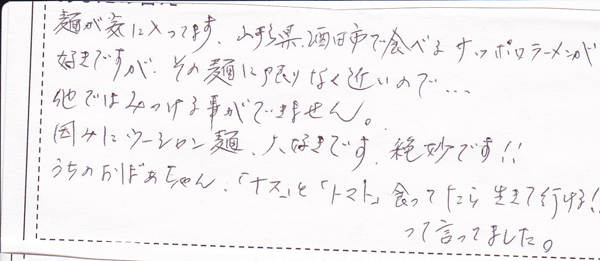 麺が気に入ってます。山形県酒田市で食べるサッポロラーメンが
好きですが、その麺に限りなく近いので…
他ではみつける事ができません。
因みにツーション麺、大好きです。絶妙です!!
うちのおばあちゃん、「ナス」と「トマト」食ってたら生きて行ける!!
って言ってました。